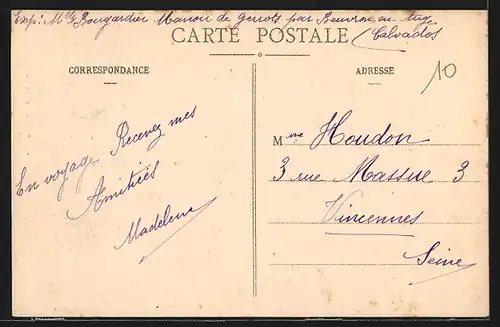 Exp: Mme Bougardier Manoir de Gerrots par Beuvron en Auge
Calvados
CARTE POSTALE
CORRESPONDANCE
En voyage Recevez mes
Amitiées
Madelene
ADRESSE
10
Mme Houdon
3 rue Massue 3
Vincennes
Seine